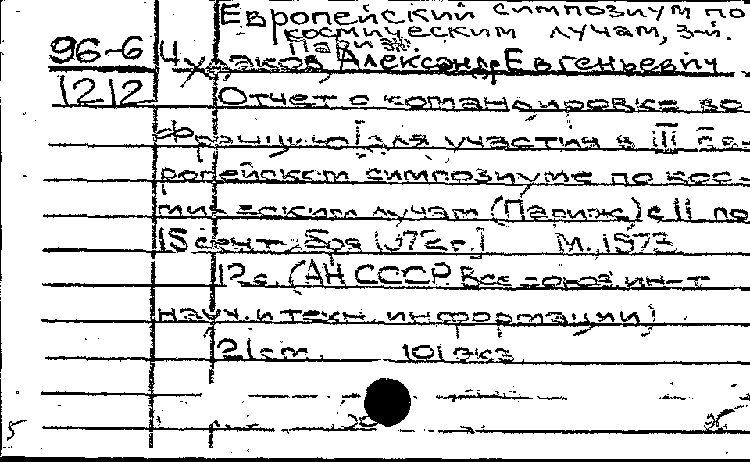 Европейский симпозиум по
космическим лучам, 3-й.
Париж.
96-6 Чудаков Александр Евгеньевич
1212 Отчет о командировке во
Францию [для участия в III Ев-
ропейском симпозиуме по кос-
мическим лучам (Париж) с 11 по
15 сентября 1972 г.] М., 1973
12 с. (АН СССР Всесоюз. ин-т
науч. и техн. информации)
21 см. 101 экз
5